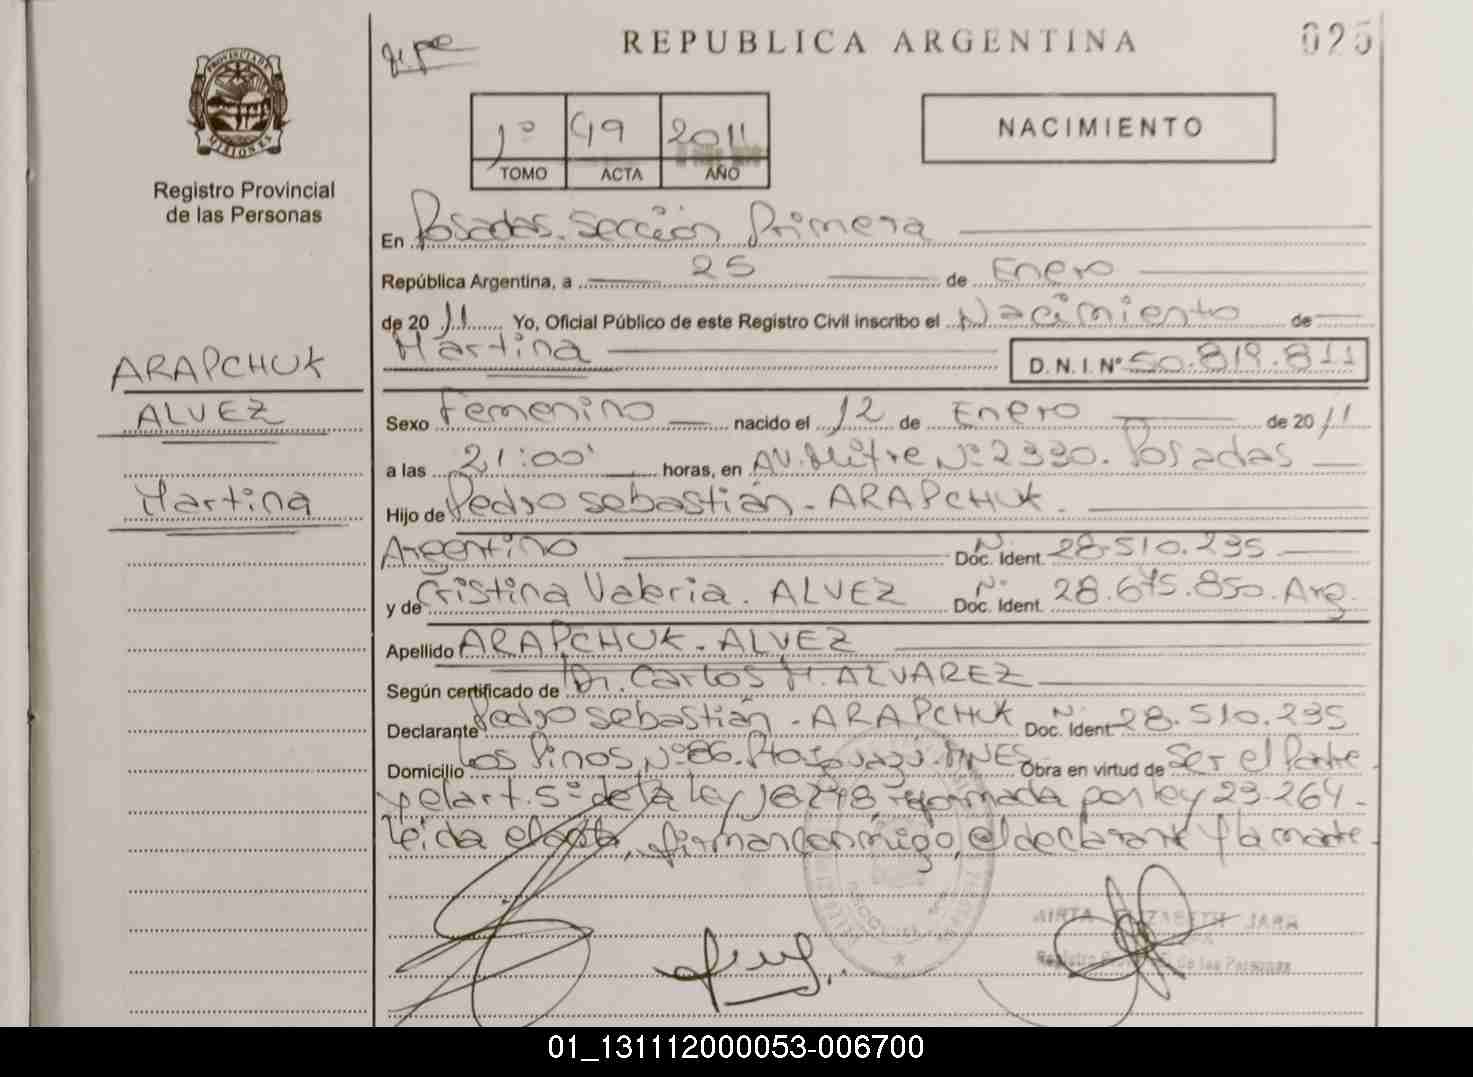 REPUBLICA ARGENTINA
025
PROVINCIA DE MISIONES
Registro Provincial
de las Personas
1º 49 2011
TOMO ACTA AÑO
NACIMIENTO
En Posadas. Sección Primera
República Argentina, a 25 de Enero
de 2011 Yo, Oficial Público de este Registro Civil inscribo el Nacimiento de
Martina D. N. I. Nº 50.819.811
ARAPCHUK
ALVEZ
Martina
Sexo Femenino nacido el 12 de Enero de 2011
a las 21:00' horas, en AV. Mitre Nº 2330. Posadas
Hijo de Pedro Sebastián - ARAPCHUK.
Argentino Doc. Ident. Nº 28.510.235
y de Cristina Valeria. ALVEZ Doc. Ident. Nº 28.675.850. Arg.
Apellido ARAPCHUK - ALVEZ
Según certificado de Dr. Carlos H. ALVAREZ
Declarante Pedro Sebastián - ARAPCHUK Doc. Ident. Nº 28.510.235
Domicilio Los Pinos Nº 86. Pto Iguazú. MNES Obra en virtud de Ser el Padre
y el art. 5º de la Ley 18248 reformada por ley 23.264 -
Leida el acta, firman conmigo, el declarante y la madre.
ELIZABETH JARA
Registro Provincial de las Personas
01_131112000053-006700